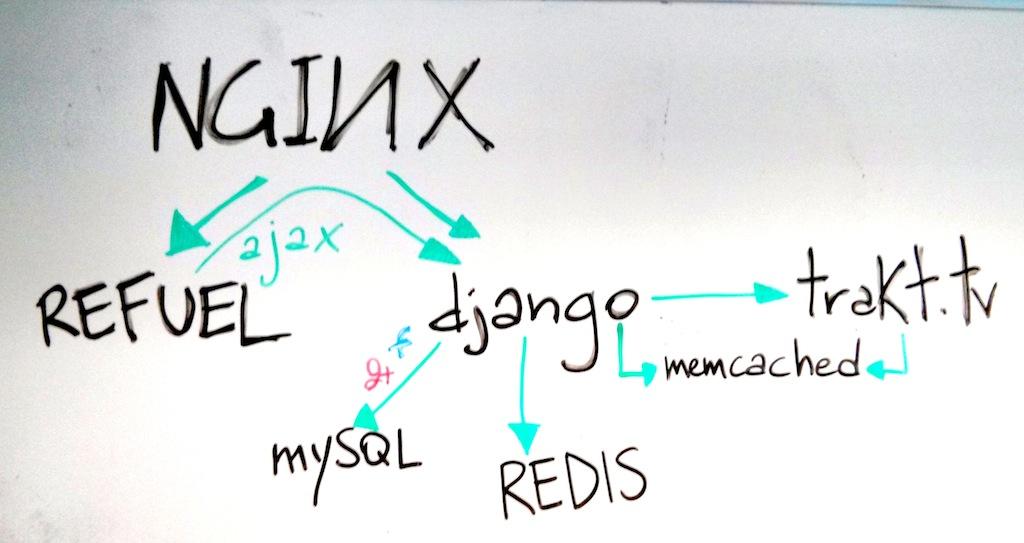 NGINX
ajax
REFUEL django trakt.tv
memcached
mySQL
REDIS